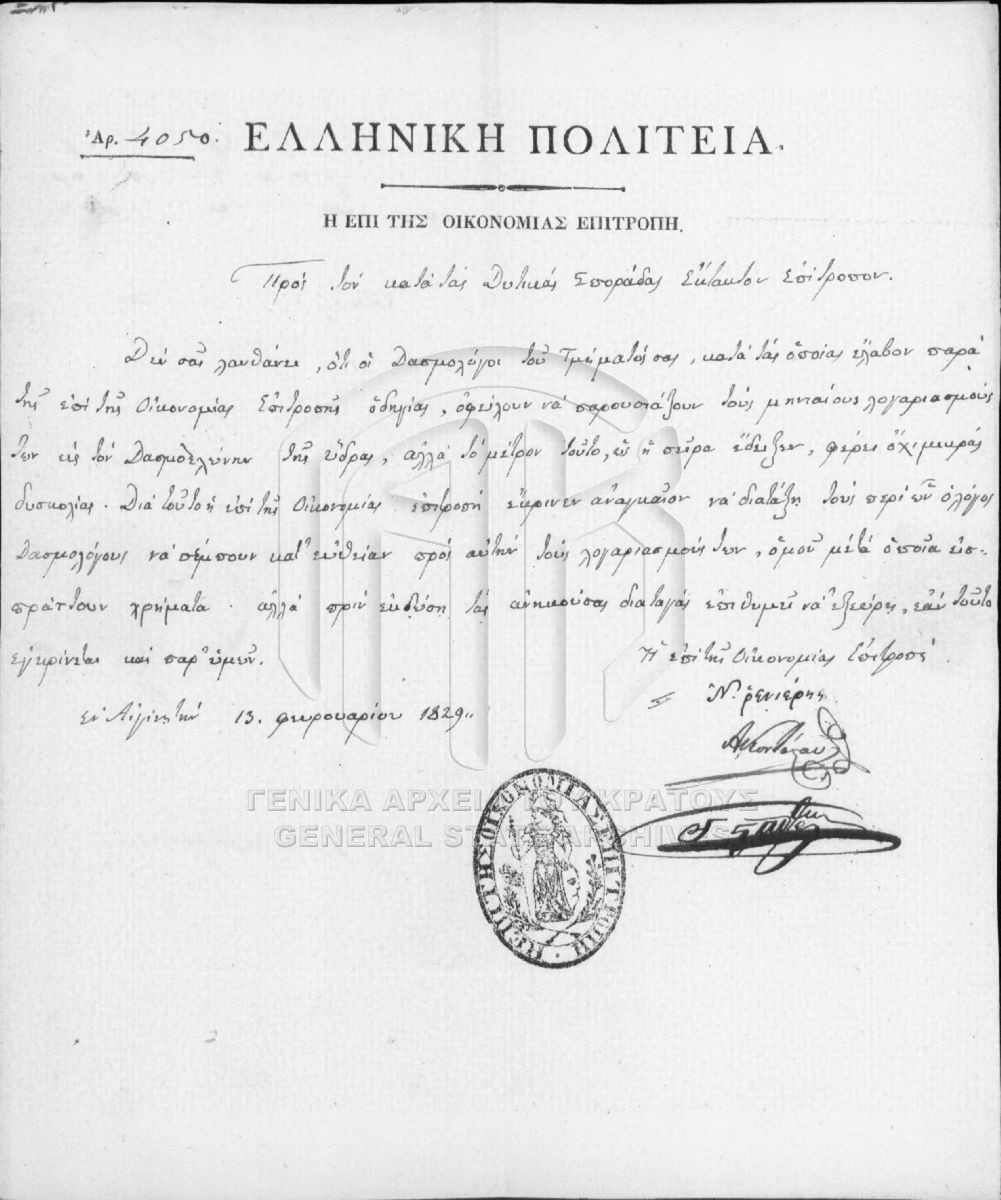 Ἀρ. 4050. ΕΛΛΗΝΙΚΗ ΠΟΛΙΤΕΙΑ.
Η ΕΠΙ ΤΗΣ ΟΙΚΟΝΟΜΙΑΣ ΕΠΙΤΡΟΠΗ.
Πρὸς τὸν κατὰ τὰς Δυτικὰς Σποράδας Ἔκτακτον Ἐπίτροπον.
Δὲν σᾶς λανθάνει, ὅτι οἱ Δασμολόγοι τοῦ Τμήματός σας, κατὰ τὰς ὁποίας ἔλαβον παρὰ
τῆς ἐπὶ τῆς Οἰκονομίας Ἐπιτροπῆς ὁδηγίας, ὀφείλουν νὰ παρουσιάζουν τοὺς μηνιαίους λογαριασμούς
των εἰς τὸν Δασμοτελώνην τῆς ὕδρας, ἀλλὰ τὸ μέτρον τοῦτο, ὡς ἡ πεῖρα ἔδειξεν, φέρει ὄχι μικρὰς
δυσκολίας. Διὰ τοῦτο ἡ ἐπὶ τῆς Οἰκονομίας ἐπιτροπὴ ἔκρινεν ἀναγκαῖον νὰ διατάξῃ τοὺς περὶ ὧν ὁ λόγος
Δασμολόγους νὰ πέμπουν κατ' εὐθεῖαν πρὸς αὐτὴν τοὺς λογαριασμούς των, ὁμοῦ μὲ τὰ ὁποῖα εἰσ-
πράττουν χρήματα. ἀλλὰ πρὶν ἐκδώσῃ τὰς ἀνηκούσας διαταγὰς ἐπιθυμεῖ νὰ ἐξεύρῃ, ἐὰν τοῦτο
ἐγκρίνεται καὶ παρ' ὑμῶν.
Ἡ ἐπὶ τῆς Οἰκονομίας Ἐπιτροπὴ
Ἐν Αἰγίνῃ τὴν 13. φευρουαρίου 1829.
Ν. ῥενιέρης
Α. Κοντόσταυλος
Η ΕΠΙ ΤΗΣ ΟΙΚΟΝΟΜΙΑΣ ΕΠΙΤΡΟΠΗ
ΓΕΝΙΚΑ ΑΡΧΕΙΑ ΤΟΥ ΚΡΑΤΟΥΣ
GENERAL STATE ARCHIVES